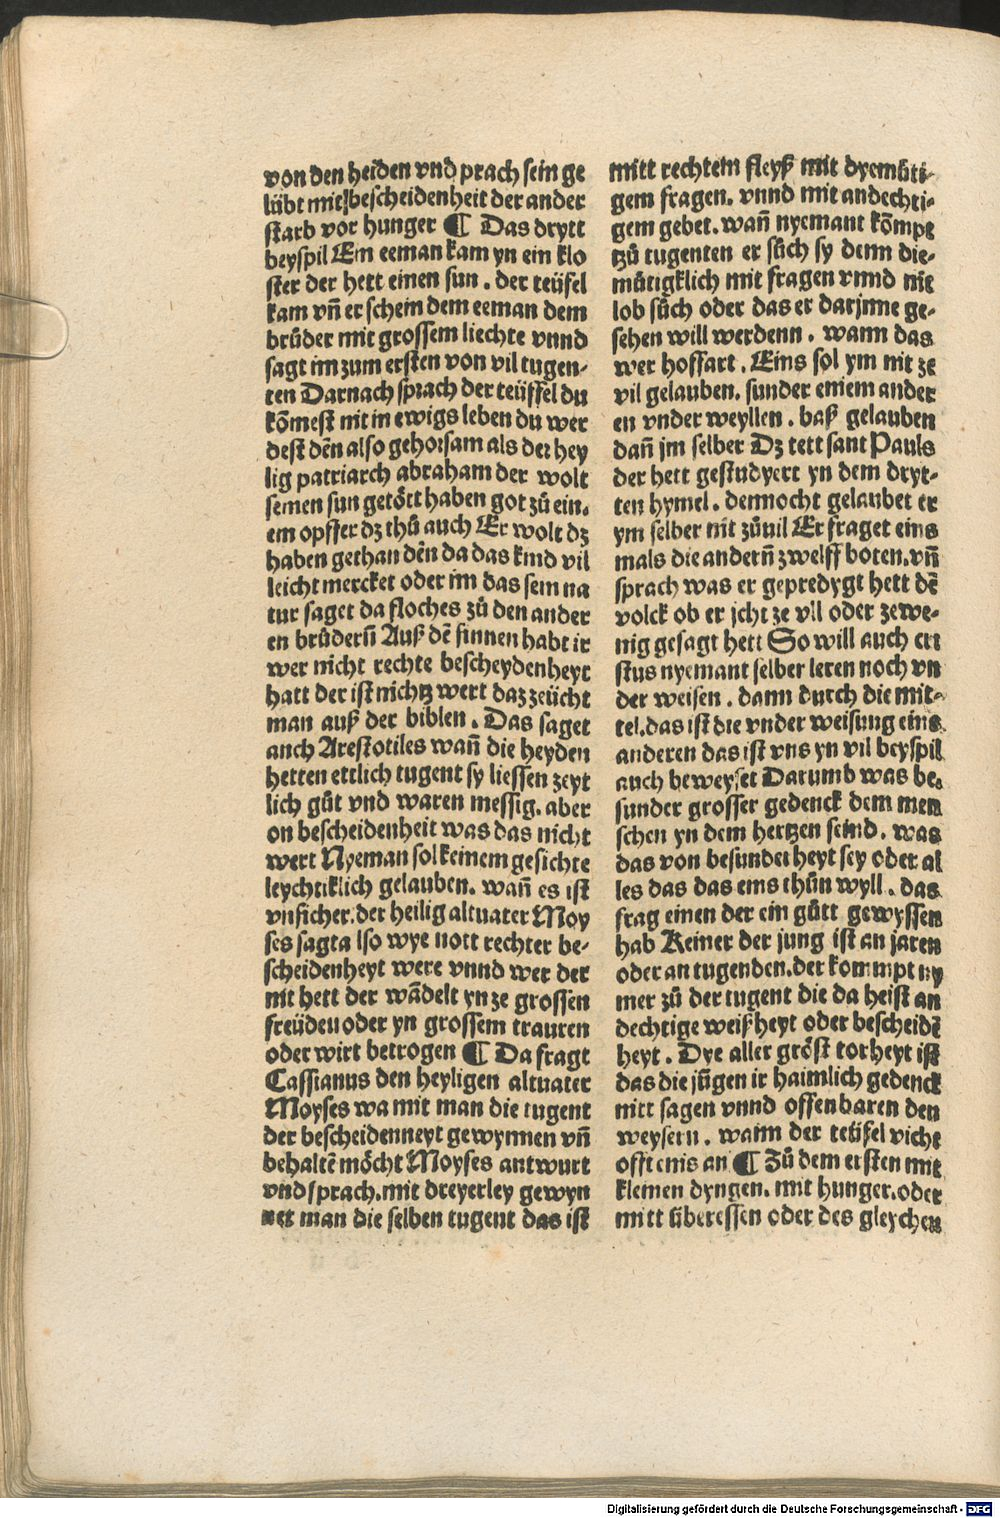 von den heiden vnd prach sein ge
lübt mit bescheidenheit der ander
starb vor hunger ¶ Das drytt
beyspil Ein eeman kam yn ein klo
ster der hett einen sun . der teüfel
kam vñ er schein dem eeman dem
brůder mit grossem liechte vnnd
sagt im zum ersten von vil tugen-
ten Darnach sprach der teüffel du
kōmest nit in ewigs leben du wer
dest dēn also gehorsam als der hey
lig patriarch abraham der wolt
seinen sun getött haben got zů ein.
em opffer dz thů auch Er wolt dz
haben gethan dēn da das kind vil
leicht mercket oder im das sein na
tur saget da floches zů den ander
en brůderñ Auß dē sinnen habt ir
wer nicht rechte bescheydenheyt
hatt der ist nichtz wert daz zeücht
man auß der biblen . Das saget
auch Arestotiles wañ die heyden
hetten ettlich tugent sy liessen zeyt
lich gůt vnd waren messig. aber
on bescheidenheit was das nicht
wert Nyeman sol keinem gesichte
leychtiklich gelauben. wañ es ist
vnsicher. der heilig altuater Moy
ses sagt a lso wye nott rechter be-
scheidenheyt were vnnd wer der
nit hett der wādelt yn ze grossen
freüden oder yn grossem trauren
oder wirt betrogen ¶ Da fragt
Cassianus den heyligen altuater
Moyses wa mit man die tugent
der bescheidenneyt gewynnen vñ
behaltē möcht Moyses antwurt
vnd sprach. mit dreyerley gewyn
net man die selben tugent das ist
mitt rechtem fleyß mit dyemůti-
gem fragen. vnnd mit andechti-
gem gebet. wañ nyemant kōmpt
tzů tugenten er sůch sy denn die-
můtigklich mit fragen vnnd nie
lob sůch oder das er darjnne ge-
sehen will werdenn . wann das
wer hoffart . Eins sol ym nit ze
vil gelauben. sunder einem ander
en vnder weyllen . baß gelauben
dañ jm selber Dz tett sant Pauls
der hett gestudyert yn dem dryt-
ten hymel. dennocht gelaubet er
ym selber nit zůuil Er fraget eins
mals die anderñ zwelff boten. vñ
sprach was er gepredygt hett dē
volck ob er jcht ze vil oder ze we-
nig gesagt hett So will auch cri
stus nyemant selber leren noch vn
der weisen . dann durch die mit-
tel. das ist die vnder weisung eins
anderen das ist vns yn vil beyspil
auch beweyset Darumb was be.
sunder grosser gedenck dem men
schen yn dem hertzen seind . was
das von besunder heyt sey oder al
les das das eins thůn wyll . das
frag einen der ein gůtt gewyssen
hab Keiner der jung ist an jaren
oder an tugenden. der kommpt ny
mer zů der tugent die da heist an
dechtige weißheyt oder bescheidē
heyt . Dye aller gröst torheyt ist
das die jungen ir haimlich gedenck
nitt sagen vnnd offenbaren den
weysern . wann der teüfel vicht
offt einis an ¶ Zů dem ersten mit
kleinen dyngen. mit hunger. oder
mitt überessen oder des gleychen
Digitalisierung gefördert durch die Deutsche Forschungsgemeinschaft - DFG